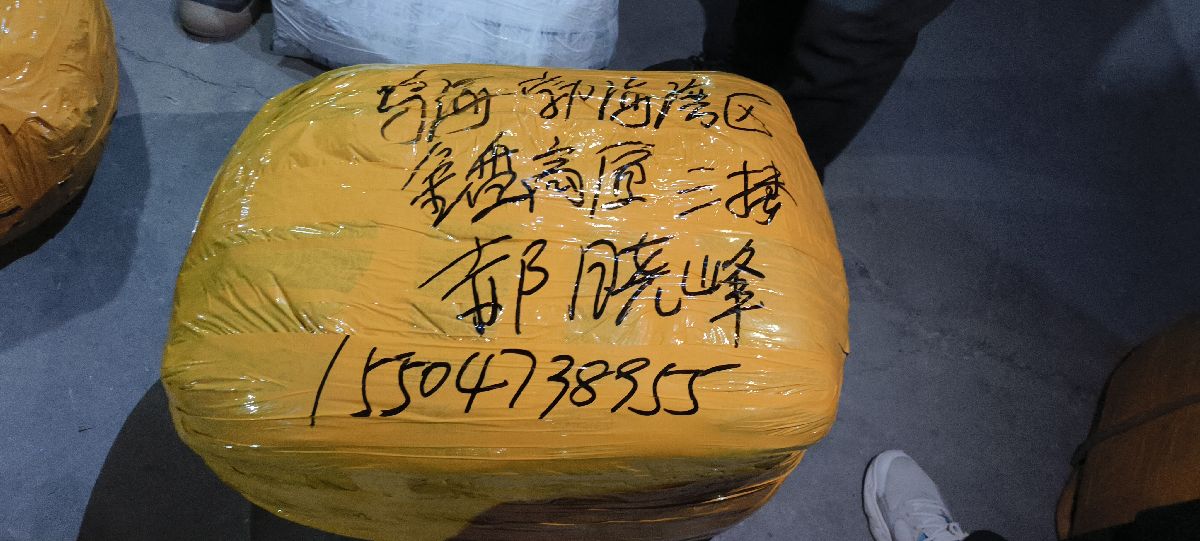 乌海 勃海湾区
鑫盛商厦二楼
郝晓峰
15504738955